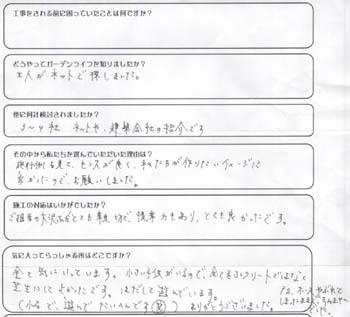 工事をされる前に困っていたことは何ですか?
どうやってガーデンライフを知りましたか?
主人がネットで探しました。
他に何社検討されましたか?
3〜4社 ネットや、建築会社の紹介です
その中から私たちを選んでいただいた理由は?
施行例を見て、センスが良く、私たちが作りたいイメージに
近かったので、お願いしました。
施工の対応はいかがでしたか?
ご担当の大沢さんがとても親切で、提案力もあり、とても良かったです。
気に入ってらっしゃる所はどこですか?
全て気にいっています。小さい子供がいるので、全てをコンクリートではなく
芝生にしてよかったです。はだしで遊んでいます。
ありがとうございました。